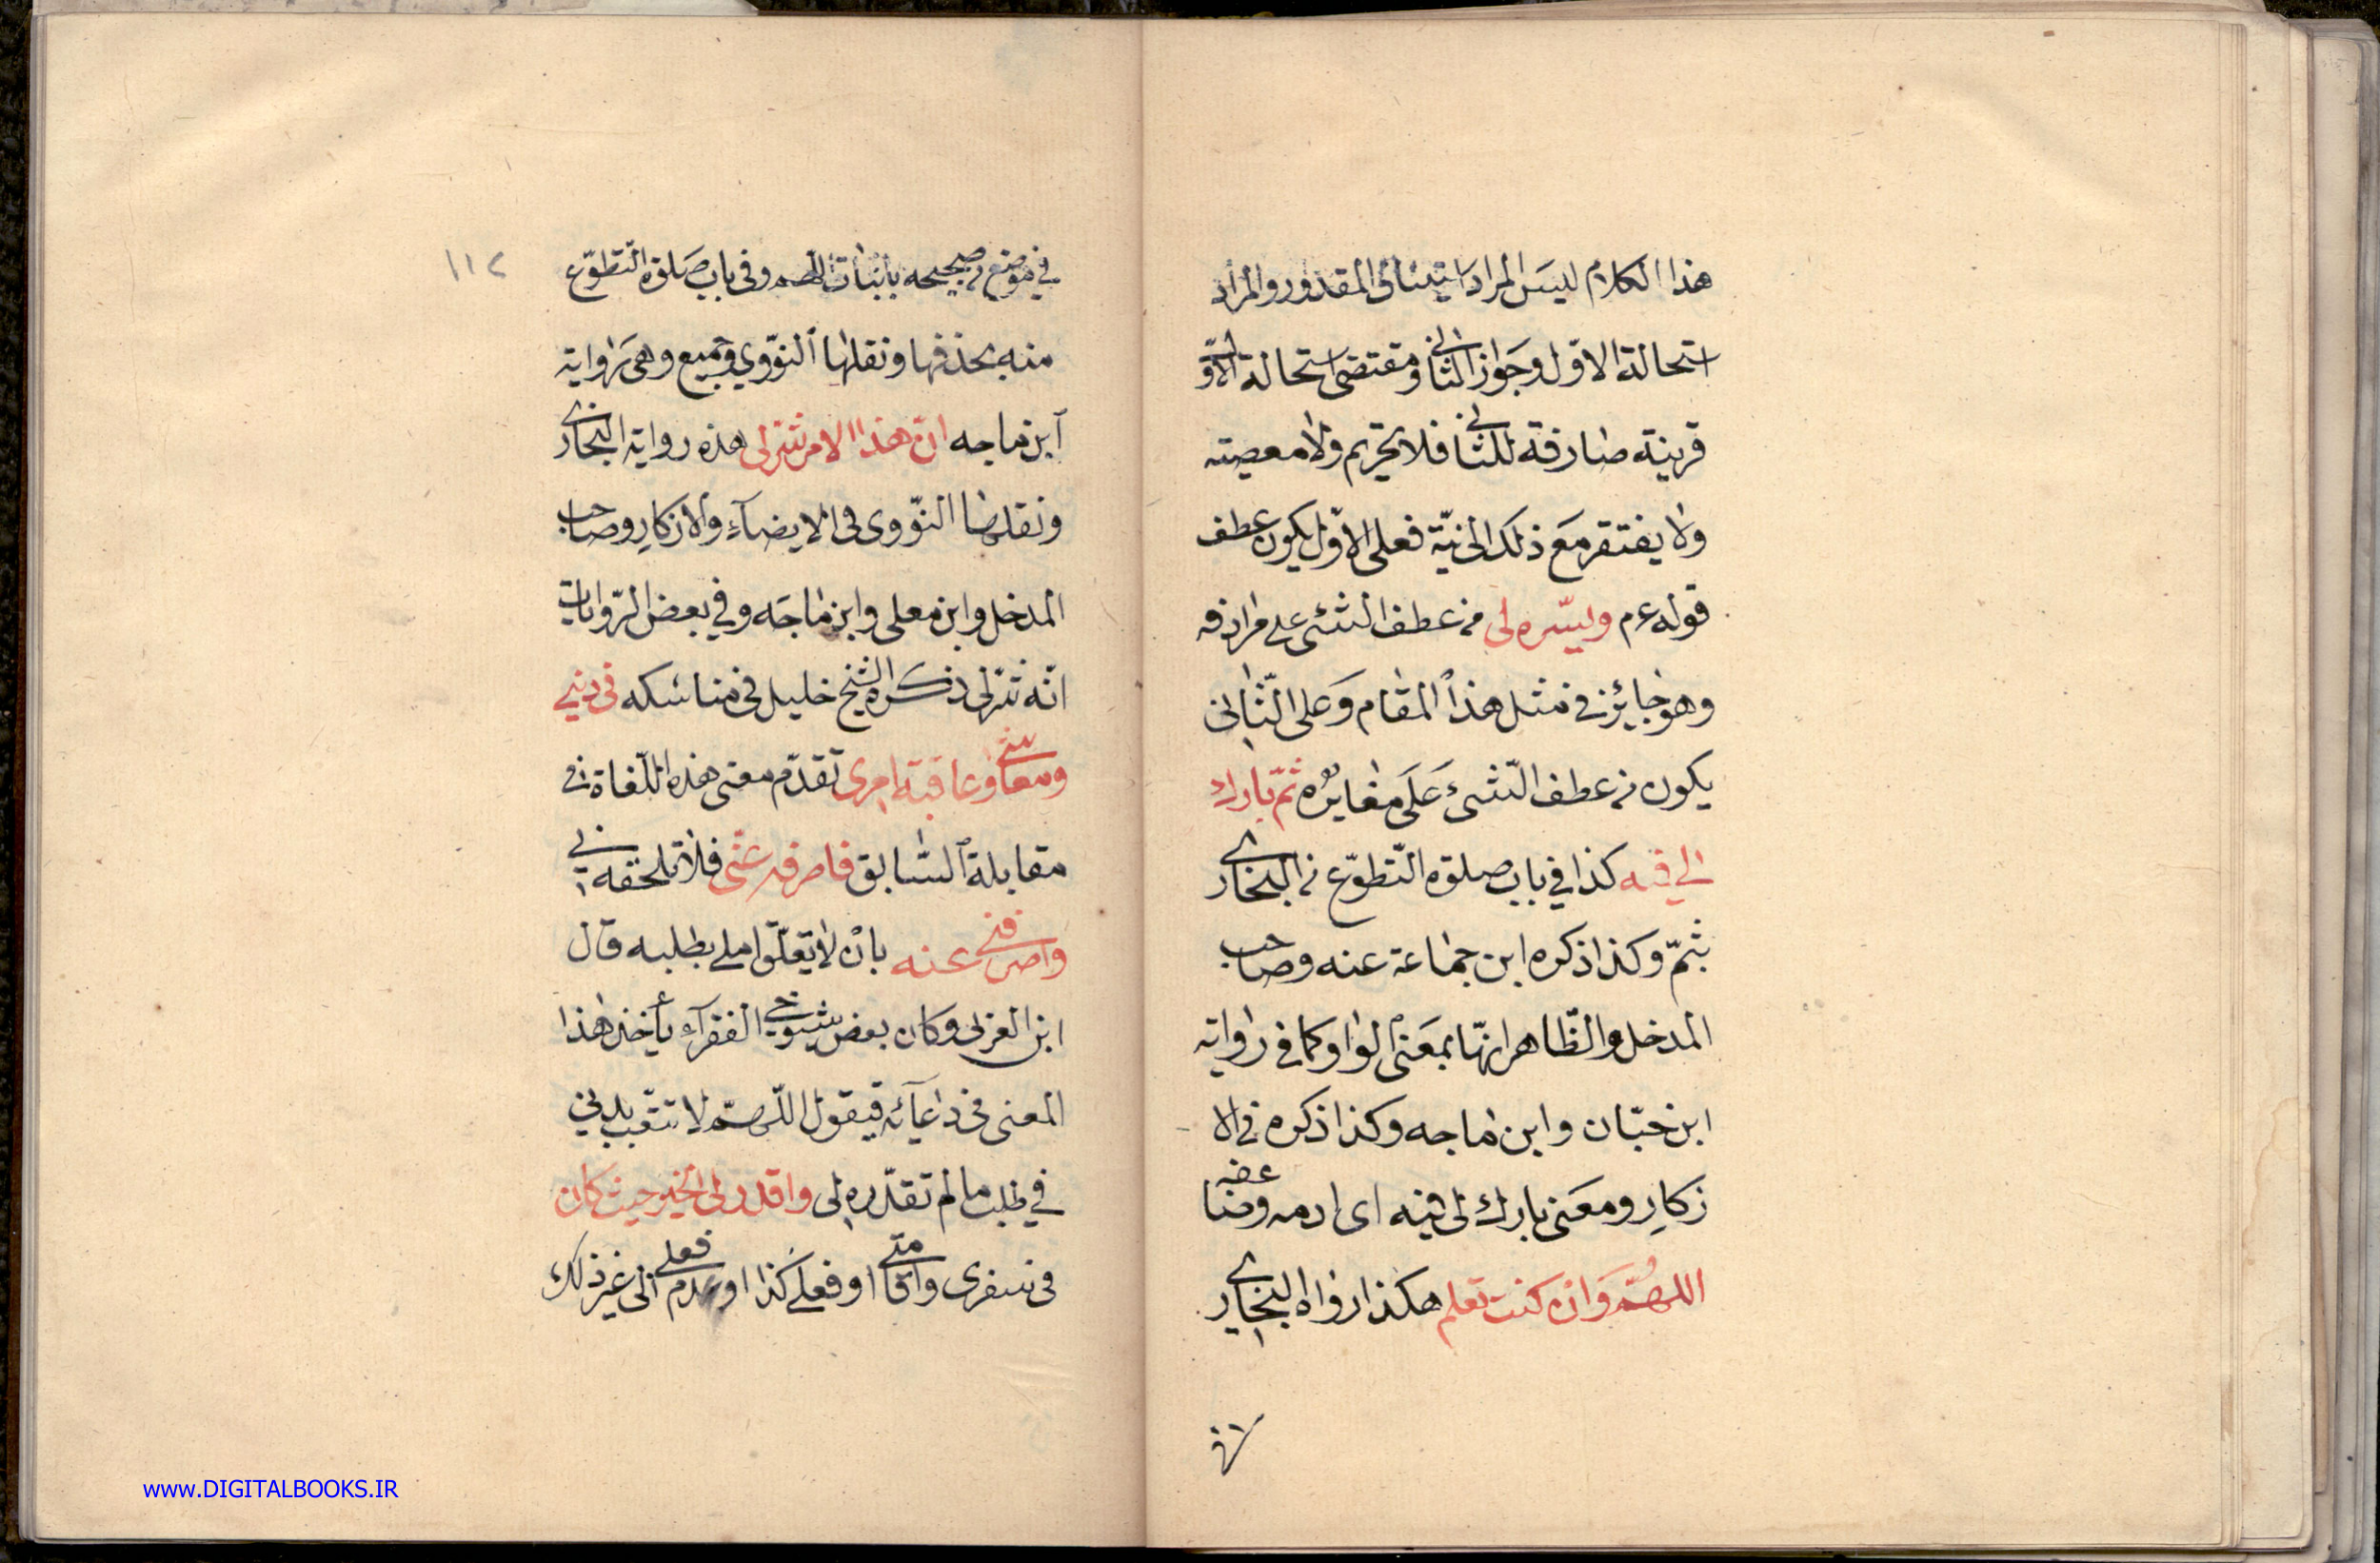 هذا الكلام ليس المراد استيناف المقدور والمراد
استحالة الاول وجواز الثاني ومقتضى استحالة الاول
قرينة صارفة للثاني فلا تحريم ولا معصية
ولا يفتقر مع ذلك الى نيّة فعلى الاوّل يكون عطف
قوله عم ويسّره لى من عطف الشئ على مرادفه
وهو جايز فى مثل هذا المقام وعلى الثّانى
يكون من عطف الشئ على مغايره ثمّ بارك
لي فيه كذا في باب صلوة التّطوّع من البخارى
بثمّ وكذا ذكره ابن جماعة عنه وصاحب
المدخل والظّاهر انّها بمعنى الواو كما فى رواية
ابن حبّان وابن ماجه وكذا ذكره فى الا
زكار ومعنى بارك لى فيه اى ادمه وضاعفه
اللهمّ وان كنت تعلم هكذا رواه البخارى
في
١١٢
في موضع من صحيحه باثبات اللهم وفى باب صلوة التّطوّع
منه بحذفها ونقلها النوّوي وجميع وهى رواية
ابن ماجه انّ هذا الامر شر لى هذه رواية البخارى
ونقلها النوّوى فى الايضاء والازكار وصاحب
المدخل وابن معلى وابن ماجه وفي بعض الرّوايات
انّه شرّ لى ذكره الشيخ خليل فى مناسكه فى دينى
ومعاشى وعاقبة امرى تقدّم معنى هذه اللّغاة فى
مقابلة السّابق فاصرفه عنّى فلا تلحقه بى
واصرفنى عنه بان لا يتعلّق املى بطلبه قال
ابن العربى وكان بعض شيوخى الفقرآء يأخذ هذا
المعنى فى دعآئه فيقول اللّهمّ لا تتعب بدنى
في طلب ما لم تقدّره لى واقدر لى الخير حيث كان
فى سفرى واقامتى او فعلى كذا او عدم فعلى الى غير ذلك
www.DIGITALBOOKS.IR